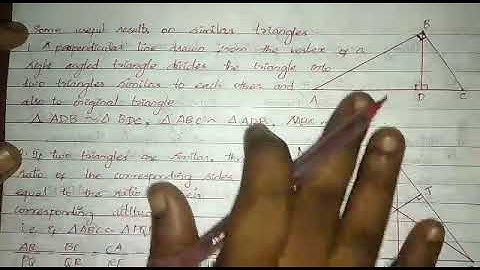 Some useful results on similar triangles
1. A perpendicular line drawn from the vertex of a
right angled triangle divides the triangle into
two triangles similar to each other and
also to original triangle.
Δ ADB ~ Δ BDC, Δ ABC ~ Δ ADB,
If two triangles are similar, the
ratio of the corresponding sides
equal to the ratio
corresponding altitu
i.e. if Δ ABC ~ Δ PQ
AB/PQ = BC/QR = CA
B
A
D
C